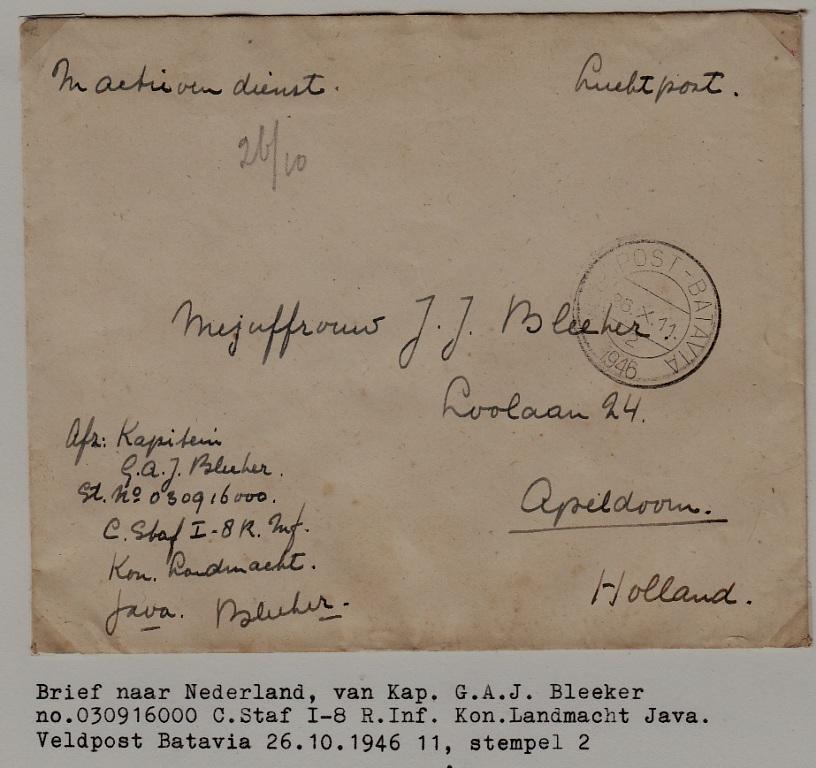 In actieven dienst.
Luchtpost.
26/10
POST-BATAVIA
26.X.11.
2
1946
Mejuffrouw J. J. Bleeker
Loolaan 24.
Apeldoorn.
Holland.
Afz: Kapitein
G.A.J. Bleeker.
St. No 030916000.
C. Staf I-8 R. Inf.
Kon. Landmacht.
Java. Bleeker.
Brief naar Nederland, van Kap. G.A.J. Bleeker
no.030916000 C.Staf I-8 R.Inf. Kon.Landmacht Java.
Veldpost Batavia 26.10.1946 11, stempel 2